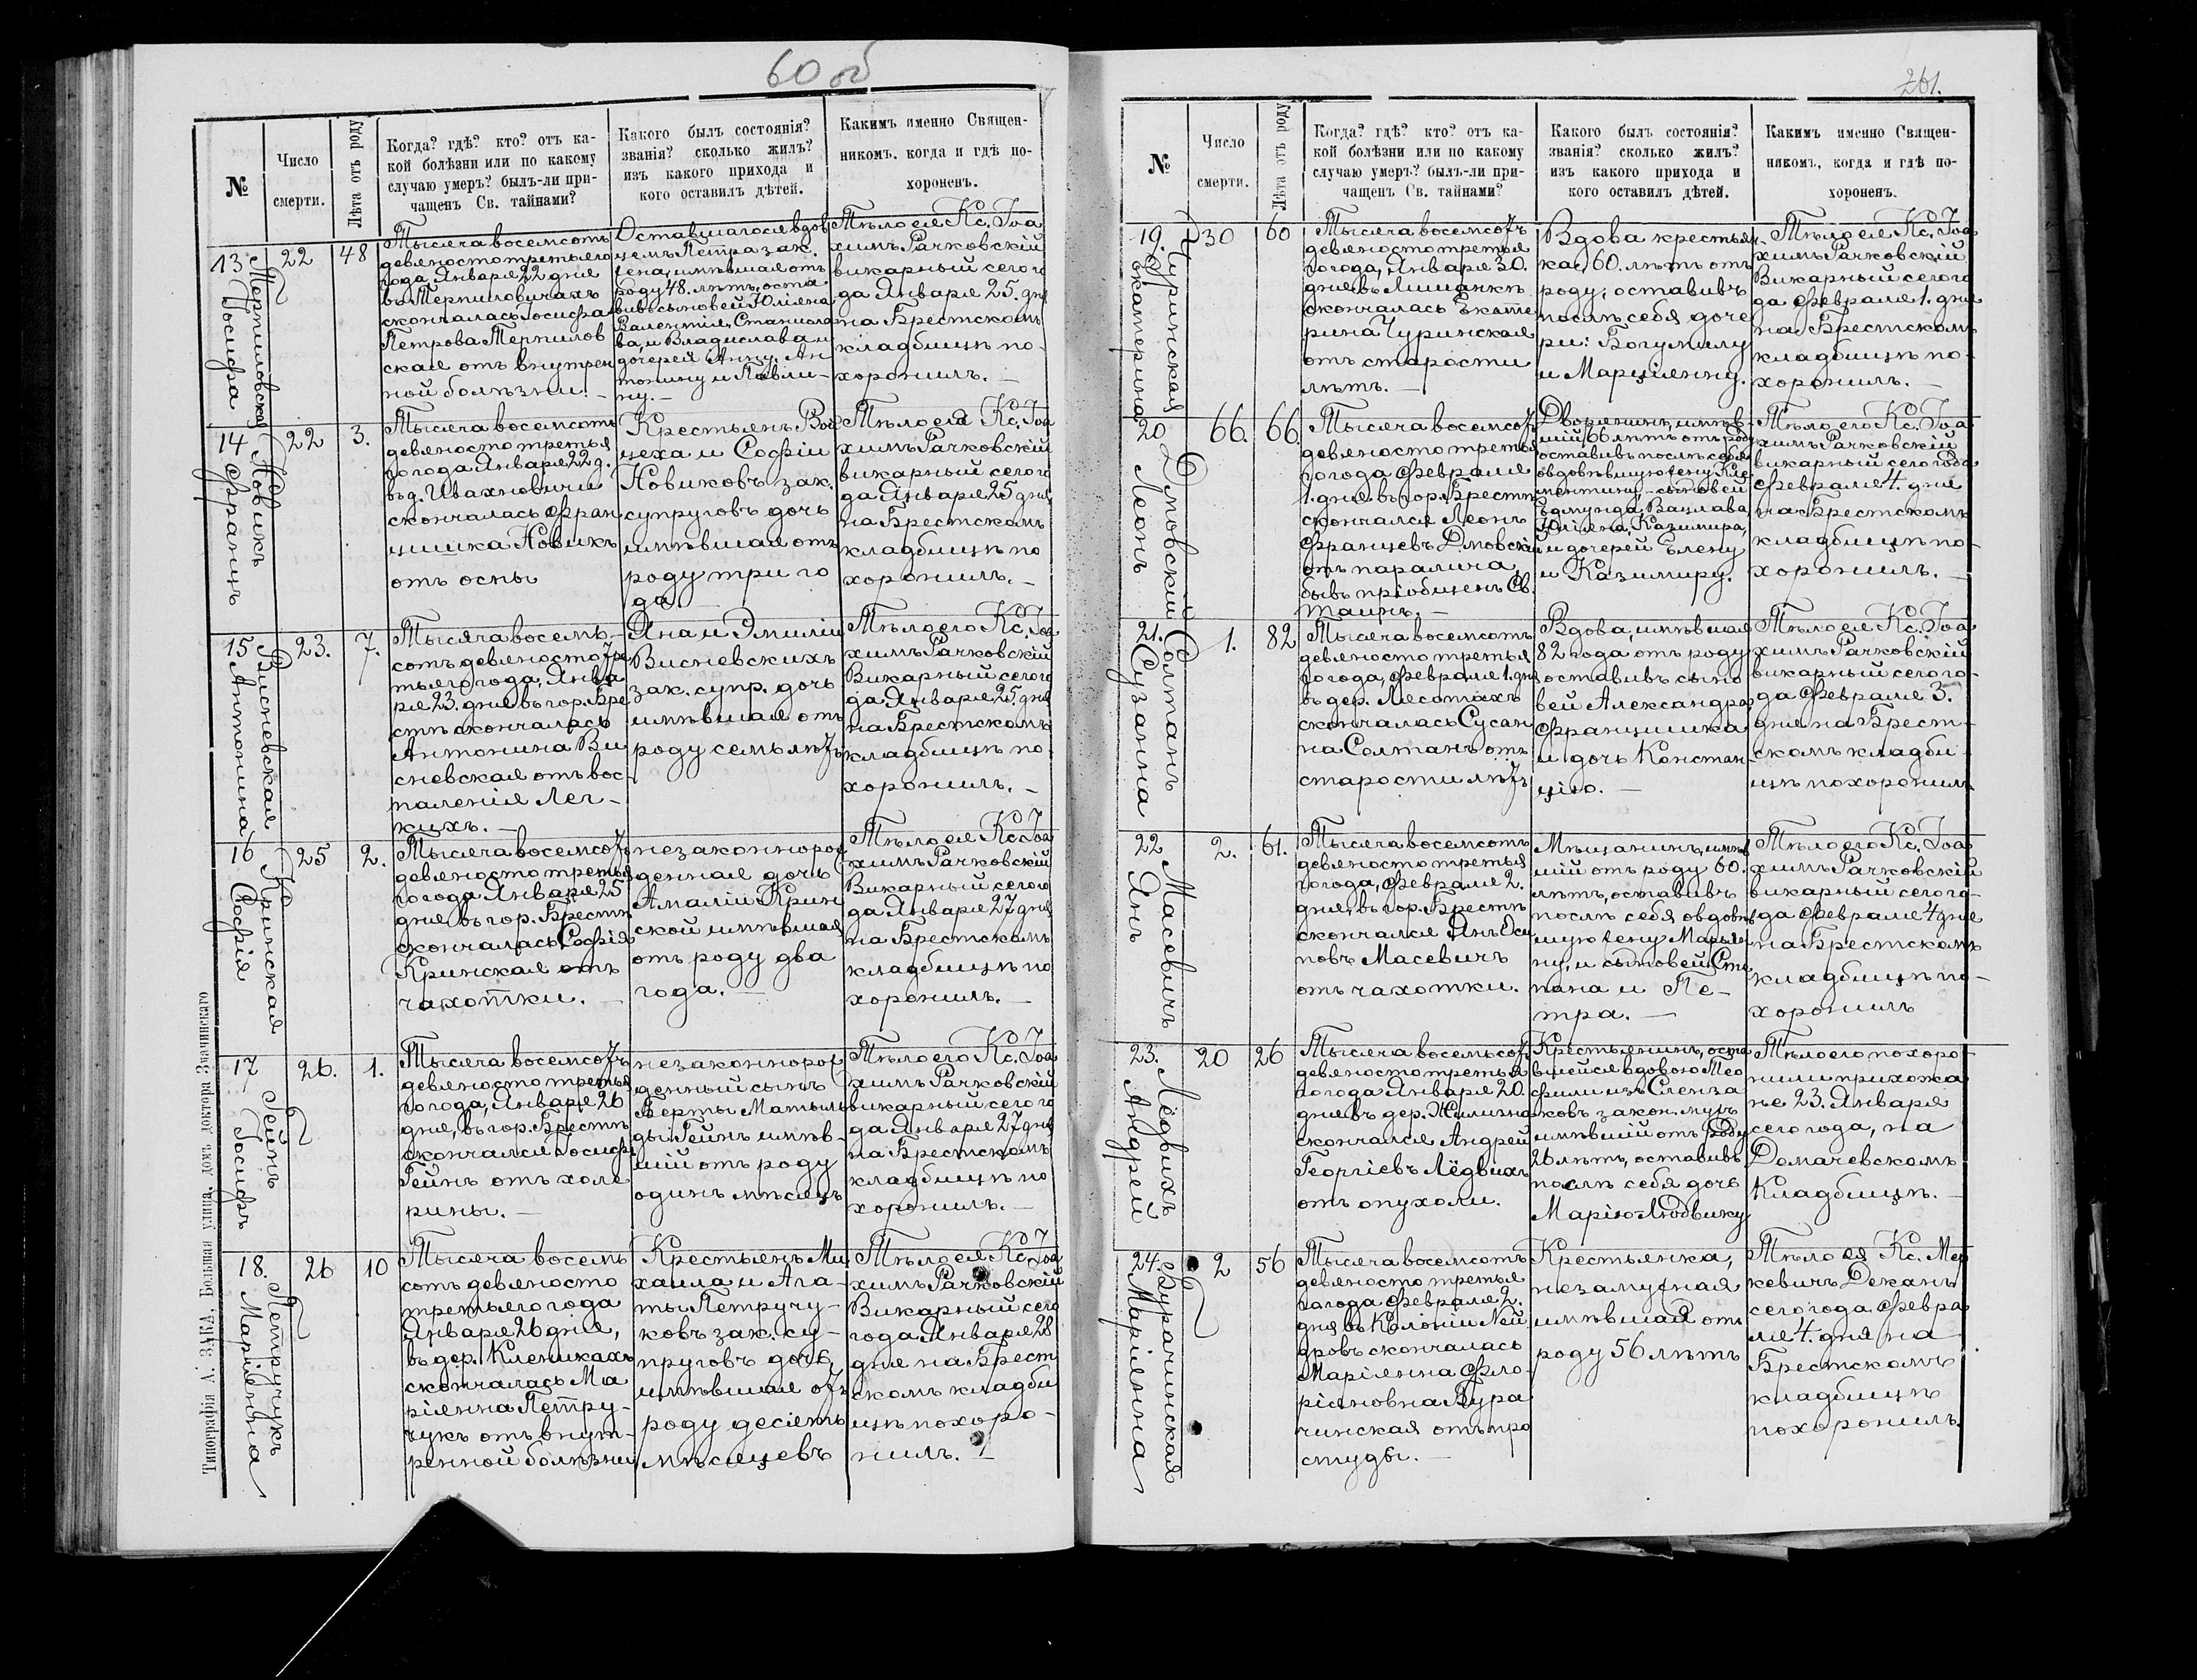 60 об
№
Число
смерти.
Лѣта отъ роду
Когда? гдѣ? кто? отъ ка-
кой болѣзни или по какому
случаю умеръ? былъ-ли при-
чащенъ Св. тайнами?
Какого былъ состоянія?
званія? сколько жилъ?
изъ какого прихода и
кого оставилъ дѣтей.
Какимъ именно Священ-
никомъ, когда и гдѣ по-
хороненъ.
13
Іосифа
22
48
Тысяча восемсотъ
девяносто третьяго
года, Января 22 дня
скончалась Іосифа
Петрова
ская отъ внутрен
ной болѣзни. —
Оставшагося вдов
цемъ Петра зак.
жена, имѣвшая отъ
роду 48. лѣтъ, оста
вивъ сыновей Юліяна
Валентія, Станисла
ва, и Владислава и
дочерей Анну, Ан
тонину и Павли-
ну. —
Тѣло ея Кс. Іоа
химъ Рачковскій
викарный сего го
да Января 25. дня
на Брестскомъ
кладбищѣ по-
хоронилъ. —
14
Новикъ
Францишъ
22
3.
Тысяча восемсотъ
девяносто третья
го года Января 22 д.
въ д. Ивахновичи
скончалась Фран
цишка Новикъ
отъ осны
Крестьянъ Вой
цеха и Софіи
Новиковъ зак.
супруговъ дочь
имѣвшая отъ
роду три го
да. —
Тѣло ея Кс. Іоа
химъ Рачковскій
викарный сего го
да Января 25 дня
на Брестскомъ
кладбищѣ по
хоронилъ. —
15
Висневская
Антонина
23.
7.
Тысяча восемь-
сотъ девяносто тре
тьяго года, Янва
ря 23. дня въ гор. Бре
стѣ скончалась
Антонина Ви
сневская отъ вос
паленія Лег-
кихъ. —
Яна и Эмиліи
Висневскихъ
зак. супр. дочь
имѣвшая отъ
роду семь лѣтъ
Тѣло его Кс. Іоа
химъ Рачковскій
Викарный сего го
да Января 25. дня
на Брестскомъ
кладбищѣ по-
хоронилъ. —
16
Кринская
Софія
25
2.
Тысяча восемсотъ
девяносто третья
го года Января 25
дня, въ гор. Брестѣ
скончалась Софія
Кринская отъ
чахотки. —
незаконнорож
денная дочь
Амаліи Крин
ской имѣвшая
отъ роду два
года. —
Тѣло ея Кс. Іоа
химъ Рачковскій
Викарный сего го
да Января 27 дня
на Брестскомъ
кладбищѣ по
хоронилъ. —
17
Гейнъ
Іосифъ
26.
1.
Тысяча восемсотъ
девяносто третья
го года, Января 26
дня, въ гор. Брестѣ
скончался Іосифъ
Гейнъ отъ холе
рины. —
незаконнорож
денный сынъ
Берты Матиль
ды Гейнъ имѣв-
шій отъ роду
одинъ мѣсяцъ
Тѣло его Кс. Іоа
химъ Рачковскій
викарный сего го
да Января 27 дня
на Брестскомъ
кладбищѣ по
хоронилъ. —
18.
Петручукъ
Маріянна
26
10
Тысяча восемь
сотъ девяносто
третьяго года
Января 26 дня,
въ дер. Клейникахъ
скончалась Ма
ріянна Петру-
чукъ отъ внут-
ренной болѣзни
Крестьянъ Ми
хаила и Ага-
ты Петручу-
ковъ зак. су-
пруговъ дочь,
имѣвшая отъ
роду десять
мѣсяцевъ
Тѣло ея Кс. Іоа
химъ Рачковскій
Викарный сего
года Января 28
дня на Брест
скомъ кладби
щѣ похоро-
нилъ. —
Типографія А. ЗАКА, Большая улица, домъ доктора Значинскаго
261.
№
Число
смерти.
Лѣта отъ роду
Когда? гдѣ? кто? отъ ка-
кой болѣзни или по какому
случаю умеръ? былъ-ли при-
чащенъ Св. тайнами?
Какого былъ состоянія?
званія? сколько жилъ?
изъ какого прихода и
кого оставилъ дѣтей.
Какимъ именно Священ-
никомъ, когда и гдѣ по-
хороненъ.
19.
Чуринская
Екатерина
30
60
Тысяча восемсотъ
девяносто третья
го года, Января 30.
дня въ
скончалась Екате
рина Чуринская
отъ старости
лѣтъ. —
Вдова крестьян
ка, 60. лѣтъ отъ
роду, оставивъ
послѣ себя доче
ри: Богумилу
и Марціянну.
Тѣло ея Кс. Іоа
химъ Рачковскій
Викарный сего го
да Февраля 1. дня
на Брестскомъ
кладбищѣ по-
хоронилъ. —
20
Дмовскій
Леонъ
66.
66.
Тысяча восемсотъ
девяносто третья
го года Февраля
1. дня въ гор. Брестѣ
скончался Леонъ
Францевъ Дмовскій
отъ паралича,
бывъ пріобщенъ Св.
Таинъ. —
Дворянинъ, имѣв-
шій 66 лѣтъ отъ роду
оставивъ послѣ себя
овдовѣвшую жену Кле
ментину, — сыновей
Эдмунда, Вацлава,
Юліяна, Казимира,
и дочерей Елену
и Казимиру.
Тѣло его Кс. Іоа
химъ Рачковскій
викарный сего года
Февраля 4. дня
на Брестскомъ
кладбищѣ по-
хоронилъ. —
21.
Солтанъ
Сузанна
1.
82
Тысяча восемсотъ
девяносто третья
го года, Февраля 1. дня
въ дер. Лесотахъ
скончалась Сусан
на Солтанъ отъ
старости лѣтъ
Вдова, имѣвшая
82 года отъ роду
оставивъ сыно
вей Александра,
Францишка
и дочь Констан-
цію. —
Тѣло ея Кс. Іоа
химъ Рачковскій
викарный сего го-
да Февраля 3.
дня на Брест-
скомъ кладби
щѣ похоронилъ
22
Масевичъ
Янъ
2.
61.
Тысяча восемсотъ
девяносто третья
го года, Февраля 2.
дня, въ гор. Брестѣ
скончался Янъ Оси
повъ Масевичъ
отъ чахотки.
Мѣщанинъ, имѣв
шій отъ роду 60.
лѣтъ, оставивъ
послѣ себя овдовѣв
шую жену Марьян
ну, и сыновей Сте
пана и Пе-
тра. —
Тѣло его Кс. Іоа
химъ Рачковскій
викарный сего го-
да Февраля 4 дня
на Брестскомъ
кладбищѣ по-
хоронилъ
23.
Лёдвихъ
Андрей
20
26
Тысяча восемьсотъ
девяносто третья
го года Января 20.
дня въ дер.
скончался Андрей
Георгіевъ Лёдвихъ
отъ опухоли.
Крестьянинъ, оста
вшейся вдовою Тео
филіи изъ Сленза
ковъ закон. мужъ
имѣвшій отъ роду
26 лѣтъ, оставивъ
послѣ себя дочь
Марію-Людвику
Тѣло его похоро-
нили прихожа
не 23. Января
сего года, на
Домачевскомъ
Кладбищѣ. —
24.
Бурачинская
Маріянна
2
56
Тысяча восемсотъ
девяносто третья
го года Февраля 2.
дня въ Колоніи Ней
дровъ скончалась
Маріянна Фло-
ріяновна Бура
чинская отъ про
студы. —
Крестьянка,
незамужная
имѣвшая отъ
роду 56 лѣтъ
Тѣло ея Кс. Мер
кевичъ Деканъ
сего года Февра
ля 4. дня на
Брестскомъ
кладбищѣ
похоронилъ.